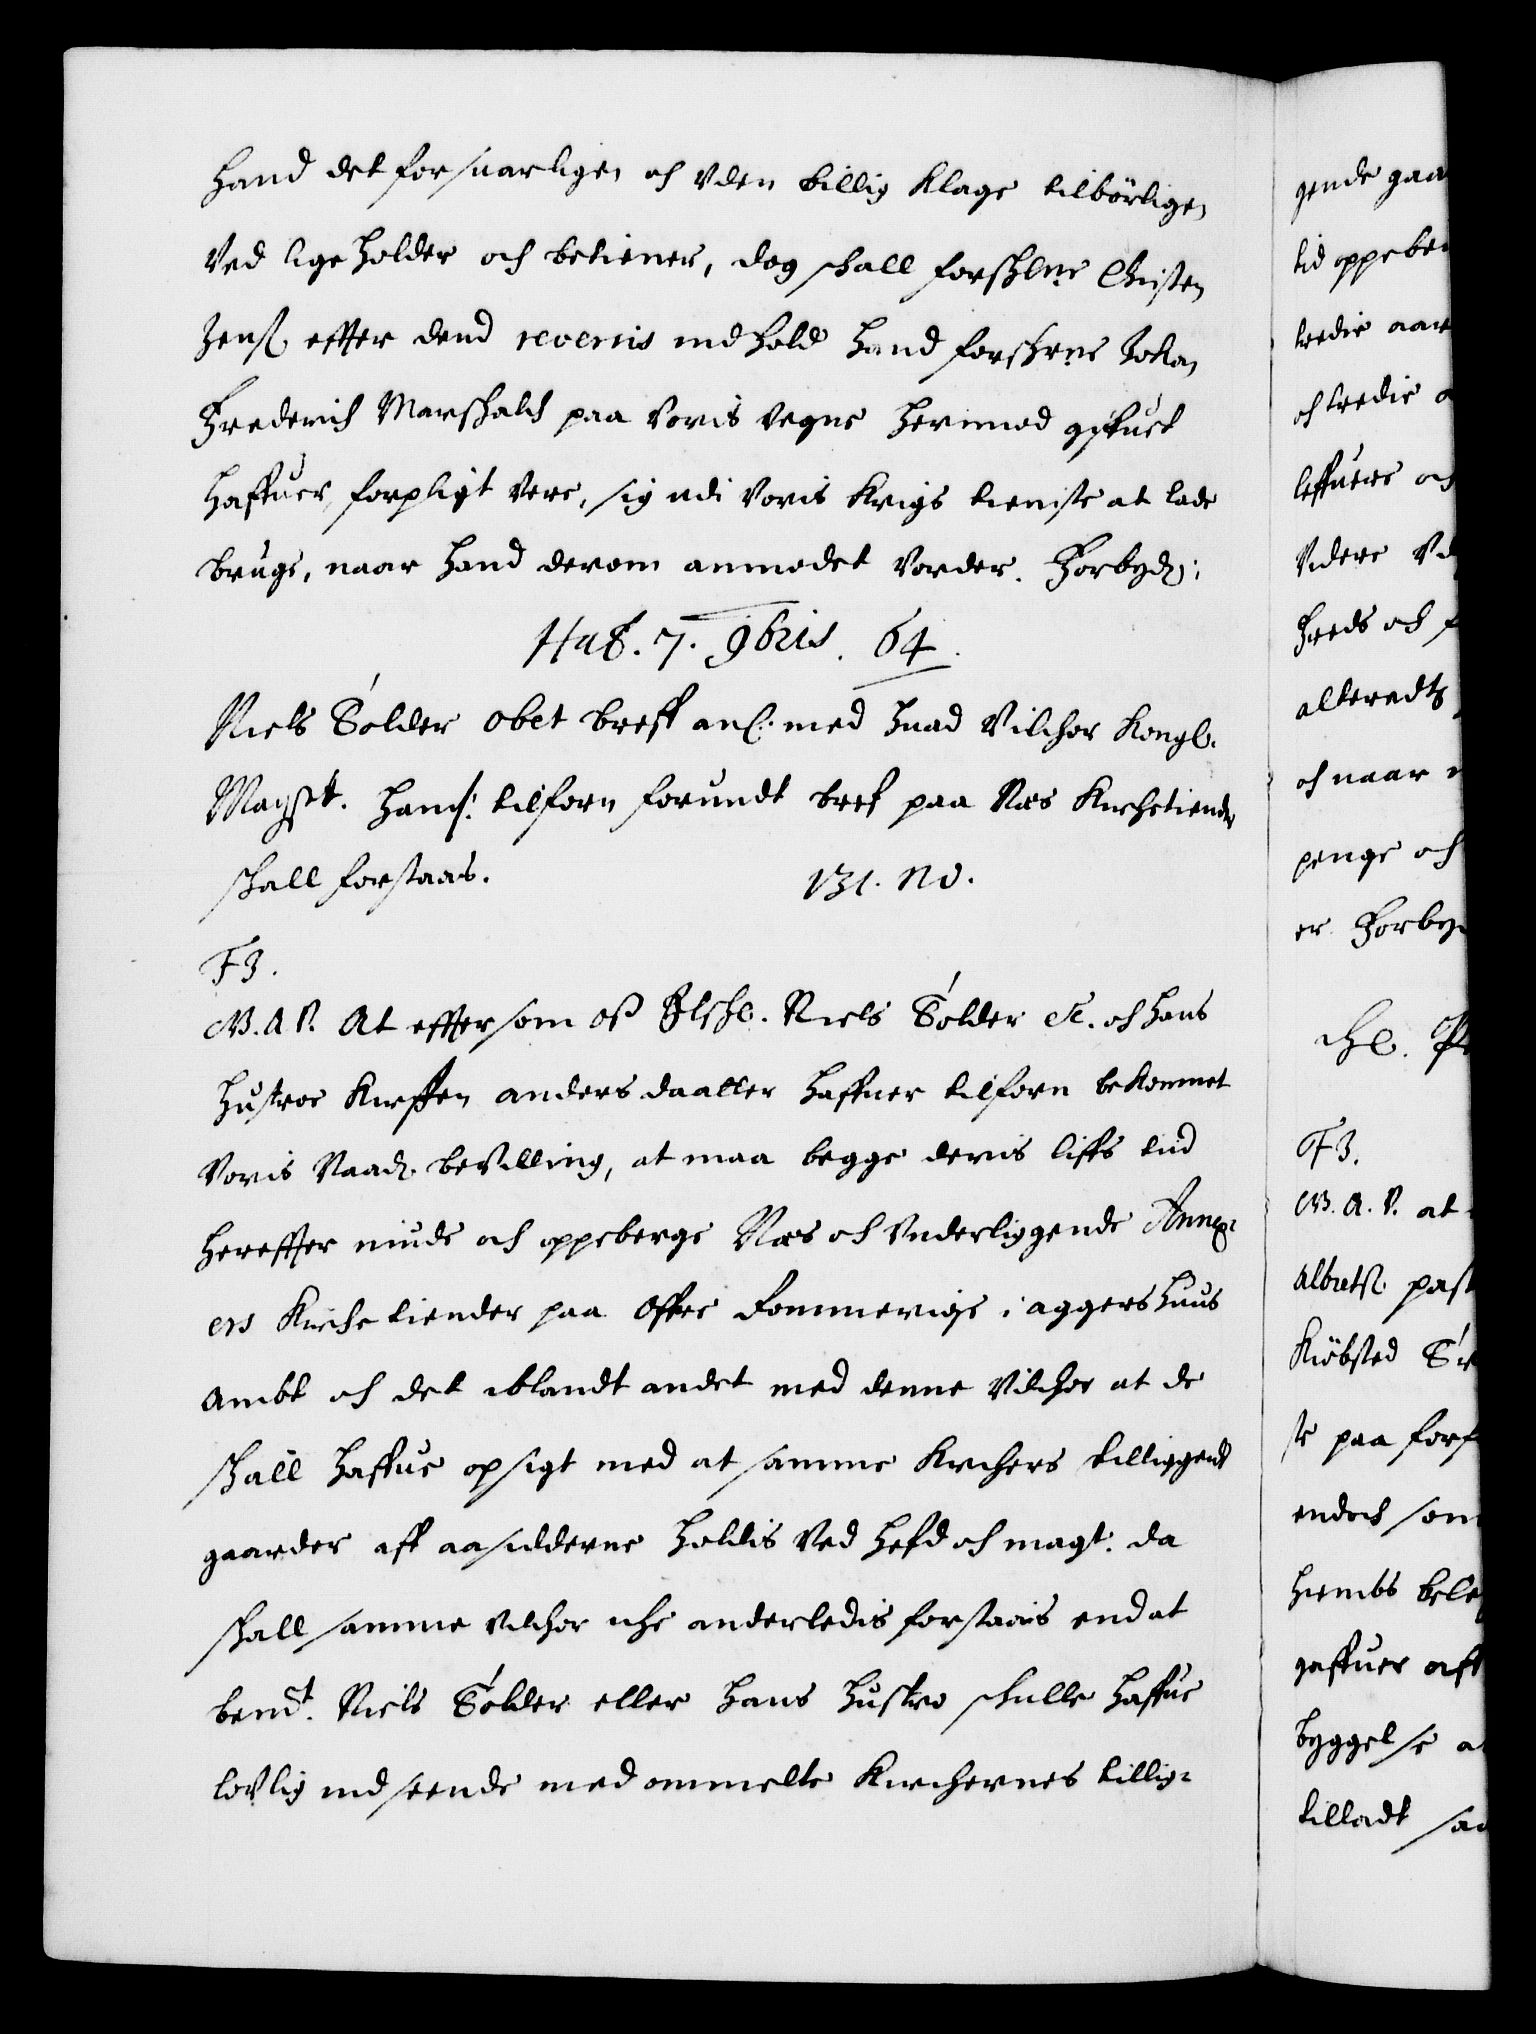 hand det forsuarligen och uden billig Klage tilbörligen
Ved lige holder och betiener, dog schall forschrne Christen
Jenß. effter dend revertis indhold hand forschrne Johan
Frederich Marschalch paa Voris Vegne herimod giffuet
haffuer, forpligt Vere, sig udi Voris Krigs tieniste at lade
bruge, naar hand derom anmodet Vorder. Forbydȩ.
Haf. 7. 9bris. 64.
Niels Sölder obet breff anl. med huad Vilchor Kongl.
Mayst. hans. tilforn forundt bref paa Næs Kirchetiender
schall forstaaes. 131. No.
F3.
G.A.V. At effter som oß Elschl. Niels Sölder etc. och hans
hustroe Kirsten anders daatter haffuer tilforn bekommet
Voris Naadȩ. beVilling, at maa begge deris liffs tiid
hereffter niude och oppeberge Næs och Underliggende Annex=
ers Kirche tiender paa Offre Rommerige i aggershuus
Ambt och det iblandt andet med denne Vilchor at de
schall haffue opsigt med at samme Kirchers tilliggende
gaarder aff aasidderne holdis Ved hefd och magt. da
schall samme Vilchor iche anderledis forstaais end at
bemt. Niels Sölder eller hans hustro schulle haffue
lovlig indseende med ommelte Kirchernes tillig=
gende gaa
tid oppeber
tredie aar
och tredie
leffuere och
Videre Vd
hreds och
alleredts
och naar
penge och
er Forby
F3.
G.A.V. at
Albretß. past
Kiöbsted
ste paa forf
endoch som
hiembs bele
gaffuer aff
byggelse a
tilladt saa